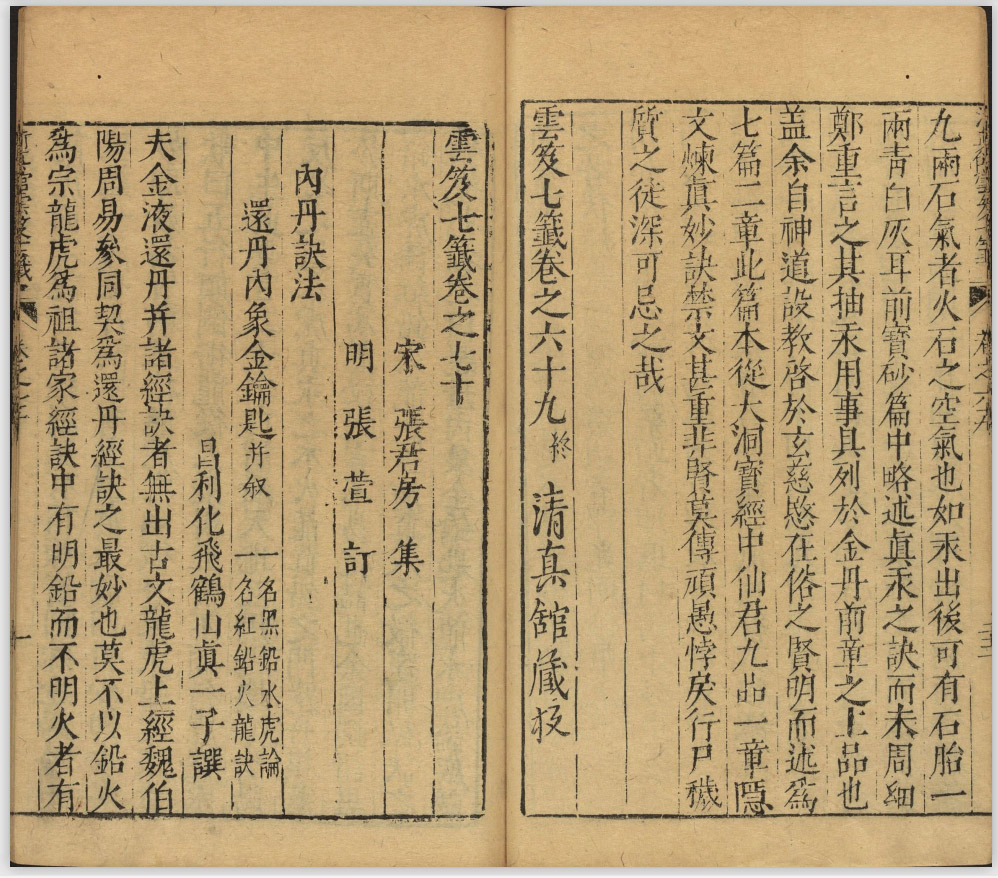 九兩石氣者火石之空氣也如汞出後可有石胎一
兩青白灰耳前寶砂篇中略述眞汞之訣而未周細
鄭重言之其抽汞用事具列於金丹前章之上品也
盖余自神道設教啓於玄慈愍在俗之賢明而述爲
七篇二章此篇本從大洞寶經中仙君九品一章隱
文煉眞妙訣禁文甚重非賢莫傳頑愚悖戾行尸穢
質之徒深可忌之哉
雲笈七籤卷之六十九 終 清真館藏板
雲笈七籤卷之七十
宋 張君房 集
明 張萱 訂
內丹訣法
還丹內象金鑰匙 并叙 一名黑鉛水虎論 一名紅鉛火龍訣
昌利化飛鶴山眞一子譔
夫金液還丹并諸經訣者無出古文龍虎上經魏伯
陽周易叅同契爲還丹經訣之最妙也莫不以鉛火
爲宗龍虎爲祖諸家經訣中有明鉛而不明火者有